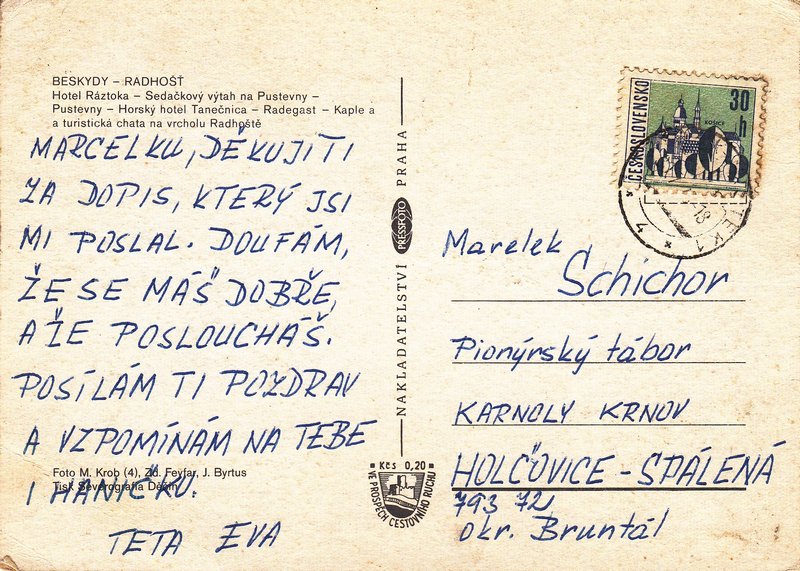 BESKYDY – RADHOŠŤ
Hotel Ráztoka – Sedačkový výtah na Pustevny –
Pustevny – Horský hotel Tanečnica – Radegast – Kaple a
a turistická chata na vrcholu Radhoště
MARCELKU, DĚKUJI TI
ZA DOPIS, KTERÝ JSI
MI POSLAL. DOUFÁM,
ŽE SE MÁŠ DOBŘE,
A ŽE POSLOUCHÁŠ.
POSÍLÁM TI POZDRAV
A VZPOMÍNÁM NA TEBE
I HANIČKU.
TETA EVA
Foto M. Krob (4), Zd. Feyfar, J. Byrtus
Tisk Severografia Děčín
NAKLADATELSTVÍ PRESSFOTO PRAHA
Kčs 0,20
VE PROSPĚCH CESTOVNÍHO RUCHU
ČESKOSLOVENSKO
30 h
KOŠICE
18
Marcelek
Schichor
Pionýrský tábor
KARNOLY KRNOV
HOLČOVICE – SPÁLENÁ
793 72
okr. Bruntál